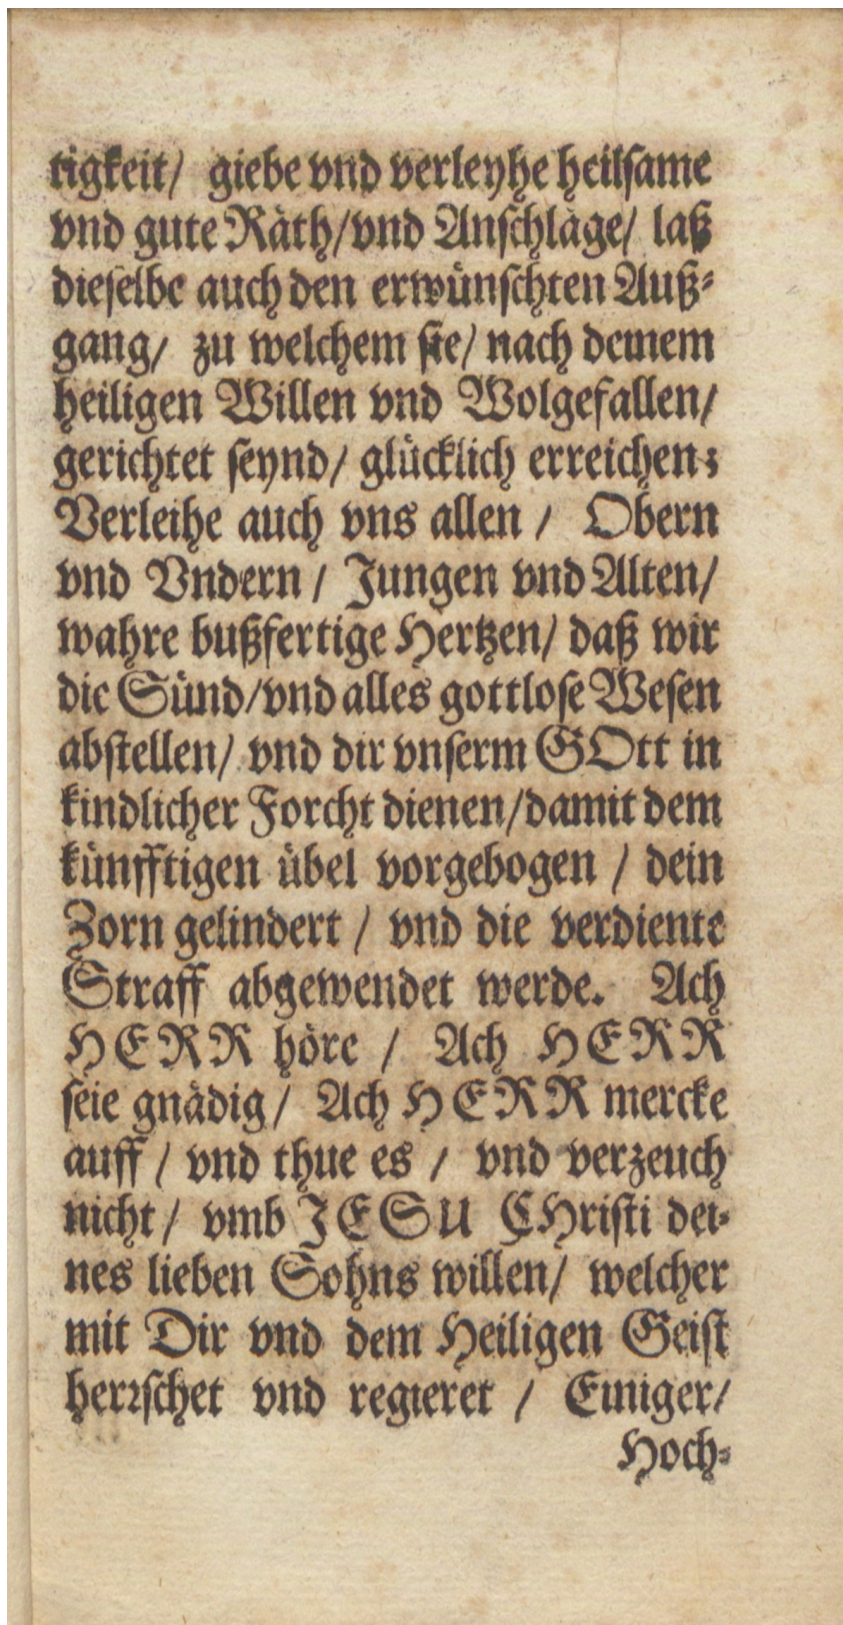 tigkeit/ giebe vnd verleyhe heilsame
vnd gute Räth/vnd Anschläge/ laß
dieselbe auch den erwünschten Auß-
gang/ zu welchem sie/ nach deinem
heiligen Willen vnd Wolgefallen/
gerichtet seynd/ glücklich erreichen;
Verleihe auch vns allen / Obern
vnd Vndern / Jungen vnd Alten/
wahre bußfertige Hertzen/ daß wir
die Sünd/vnd alles gottlose Wesen
abstellen/ vnd dir vnserm GOtt in
kindlicher Forcht dienen/damit dem
künfftigen übel vorgebogen / dein
Zorn gelindert / vnd die verdiente
Straff abgewendet werde. Ach
HERR höre / Ach HERR
seie gnädig/ Ach HERR mercke
auff / vnd thue es / vnd verzeuch
nicht / vmb JESU CHristi dei-
nes lieben Sohns willen/ welcher
mit Dir vnd dem Heiligen Geist
herrschet vnd regieret / Einiger/
Hoch-